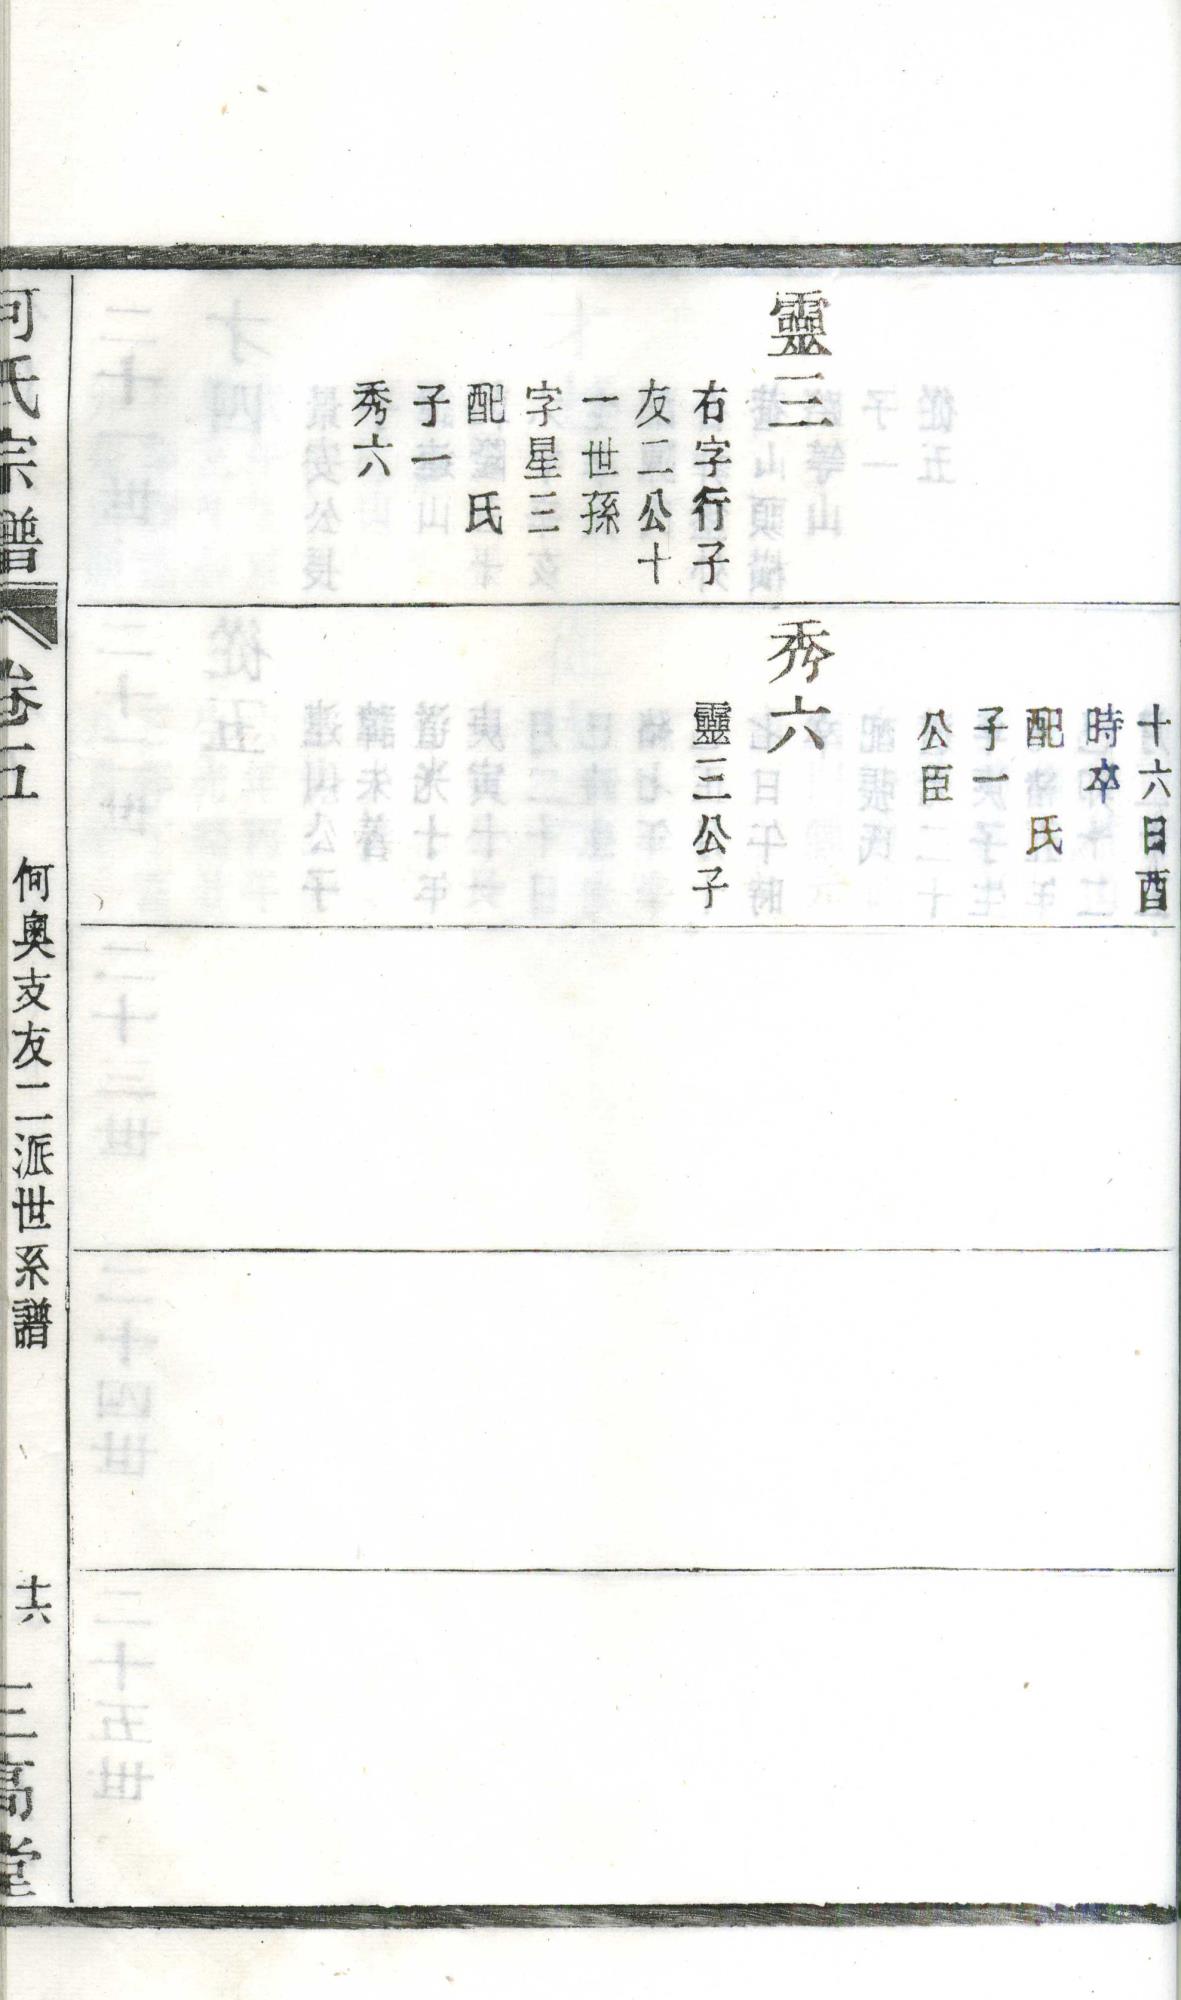 靈三
右字行子
友二公十
一世孫
字星三
配　氏
子一
秀六
十六日酉
時卒
配　氏
子一
公臣
秀六
靈三公子
何氏宗譜
卷五
何奧支友二派世系譜
十六
三高堂